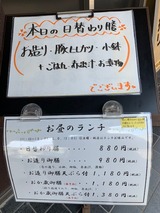 本日の日替わり膳
お造り・豚ヒレカツ・小鉢
+ごはん 赤出汁 お漬物
でございます。
お昼のランチ
日替り御膳 ―― 880円(税込)
お造り御膳 ―― 980円(税込)
お造り御膳天ぷら付 1,180円(税込)
おか蔵御膳 ―― 1,180円(税込)
おか蔵御膳天ぷら付 1,380円(税込)